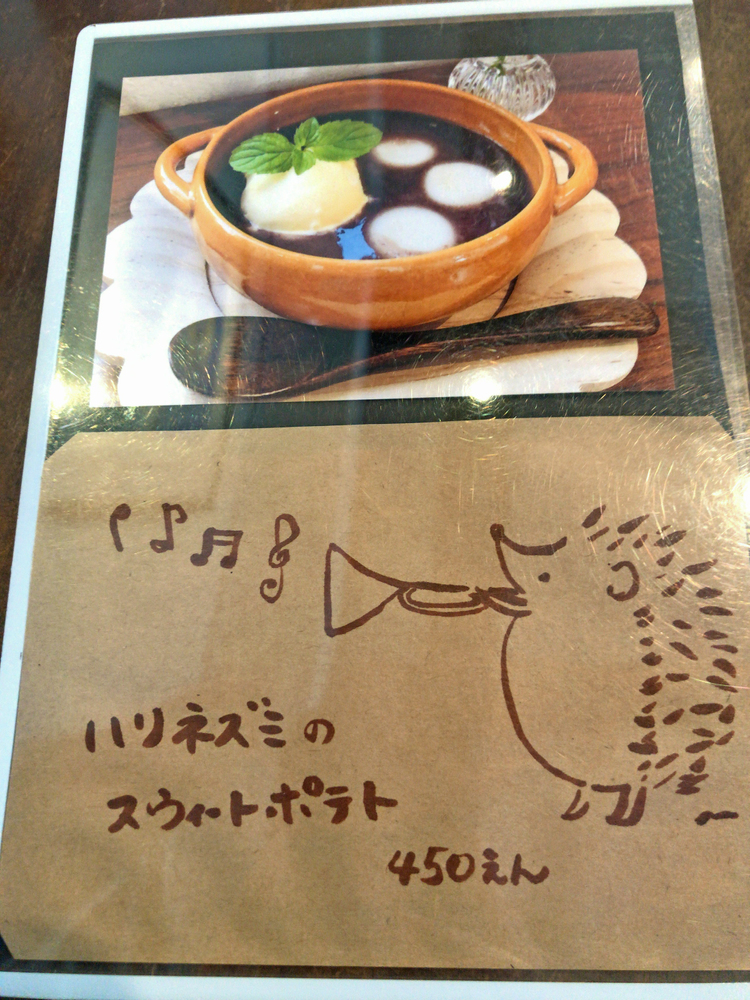 ハリネズミの
スウィートポテト
450えん